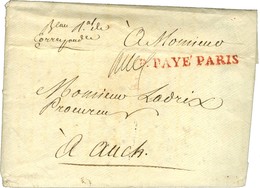 Beau N.al de
Correspondce
à Monsieur
P. PAYE PARIS
Monsieur Ladrix
Procureur
à auch.